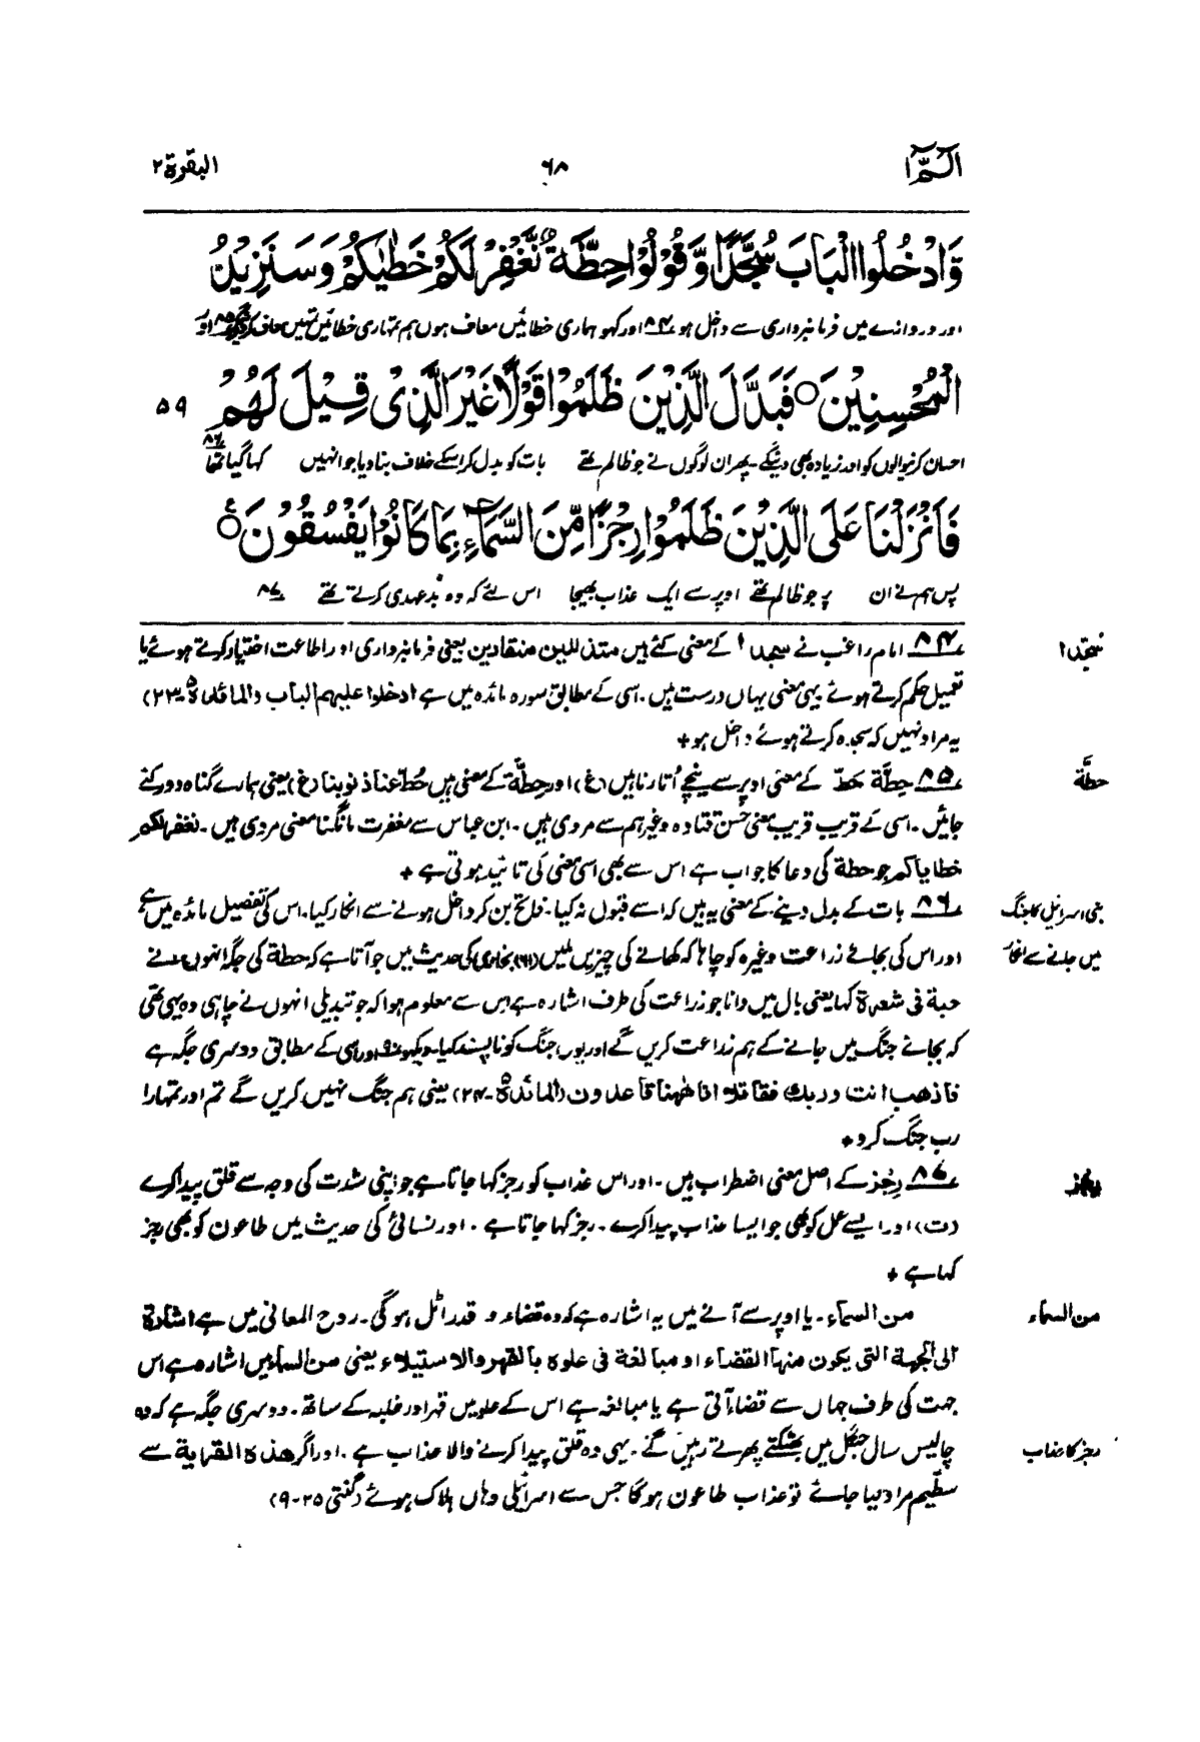 الٓمّٓ ۱
۶۸
البقرۃ ۲
وَادْخُلُوا الْبَابَ سُجَّدًا وَّقُوْلُوْا حِطَّةٌ نَّغْفِرْ لَكُمْ خَطٰيٰكُمْ وَسَنَزِيْدُ
اور دروازے میں فرمانبرداری سے داخل ہو ۸۴ اور کہو ہماری خطائیں معاف ہوں ہم تمہاری خطائیں تمہیں معاف کردینگے ۸۵ اور
الْمُحْسِنِيْنَ ○ فَبَدَّلَ الَّذِيْنَ ظَلَمُوْا قَوْلًا غَيْرَ الَّذِىْ قِيْلَ لَهُمْ ۵۹
احسان کرنیوالوں کو اور زیادہ بھی دینگے۔ پھر ان لوگوں نے جو ظالم تھے بات کو بدل کر اسکے خلاف بنا دیا جو انہیں کہا گیا تھا ۸۶
فَاَنْزَلْنَا عَلَى الَّذِيْنَ ظَلَمُوْا رِجْزًا مِّنَ السَّمَآءِ بِمَا كَانُوْا يَفْسُقُوْنَ ○ع
پس ہم نے ان پر جو ظالم تھے اوپر سے ایک عذاب بھیجا اس لئے کہ وہ بدعہدی کرتے تھے ۸۷
سُجَّدا
۸۴ امام راغب نے سجدا کے معنی کئے ہیں متذللین منقادین یعنی فرمانبرداری اور اطاعت اختیار کرتے ہوئے یا
تعمیل حکم کرتے ہوئے یہی معنی یہاں درست ہیں۔ اسی کے مطابق سورہ مائدہ میں ہے ادخلوا علیہم الباب (المائدۃ ۵-۲۳)
یہ مراد نہیں کہ سجدہ کرتے ہوئے داخل ہو +
حطّة
۸۵ حِطَّة حطّ کے معنی اوپر سے نیچے اُتارنا ہیں (غ) اور حِطَّة کے معنی ہیں حُطّ عنا ذنوبنا (غ) یعنی ہمارے گناہ دور کئے
جائیں۔ اسی کے قریب قریب معنی حسن قتادہ وغیرہم سے مروی ہیں۔ ابن عباس سے مغفرت مانگنا معنی مروی ہیں۔ نغفر لکم
خطایاکم جو حطة کی دعا کا جواب ہے اس سے بھی اسی معنی کی تائید ہوتی ہے +
بنی اسرائیل کا جنگ
میں جانے سے انکار
۸۶ بات کے بدل دینے کے معنی یہ ہیں کہ اسے قبول نہ کیا۔ فاتح بن کر داخل ہونے سے انکار کیا۔ اس کی تفصیل مائدہ میں ہے
اور اس کی بجائے زراعت وغیرہ کو چاہا کہ کھانے کی چیزیں ملیں (۶۱) بخاری کی حدیث میں جو آتا ہے کہ حطة کی جگہ انہوں نے
حبة فی شعرة کہا یعنی بال میں دانا جو زراعت کی طرف اشارہ ہے اس سے معلوم ہوا کہ جو تبدیلی انہوں نے چاہی وہ یہی تھی
کہ بجائے جنگ میں جانے کے ہم زراعت کریں گے اور یوں جنگ کو ناپسند کیا دیکھو اور اسی کے مطابق دوسری جگہ ہے
فاذهب انت وربك فقاتلا انا ههنا قاعدون (المائدۃ ۵-۲۴) یعنی ہم جنگ نہیں کریں گے تم اور تمہارا
رب جنگ کرو +
رجز
۸۷ رِجْز کے اصل معنی اضطراب ہیں۔ اور اس عذاب کو رجز کہا جاتا ہے جو اپنی شدت کی وجہ سے قلق پیدا کرے
(ت) اور ایسے عمل کو بھی جو ایسا عذاب پیدا کرے۔ رجز کہا جاتا ہے۔ اور نسائی کی حدیث میں طاعون کو بھی رجز
کہا ہے +
من السماء
من السماء۔ یا اوپر سے آنے میں یہ اشارہ ہے کہ وہ قضاء و قدر اٹل ہو گی۔ روح المعانی میں ہے اشارة
الی الجهة التی یکون منها القضاء او مبالغة فی علوہ بالقهر والاستیلاء یعنی من السماء میں اشارہ ہے اس
جہت کی طرف جہاں سے قضاء آتی ہے یا مبالغہ ہے اس کے علو میں قہر اور غلبہ کے ساتھ۔ دوسری جگہ ہے کہ وہ
رجز کا عذاب
چالیس سال جنگل میں بھٹکتے پھرتے رہیں گے۔ یہی وہ قلق پیدا کرنے والا عذاب ہے۔ اور اگر هذہ القریة سے
سطیم مراد لیا جائے تو عذاب طاعون ہوگا جس سے اسرائیلی وہاں ہلاک ہوئے (گنتی ۲۵-۹)